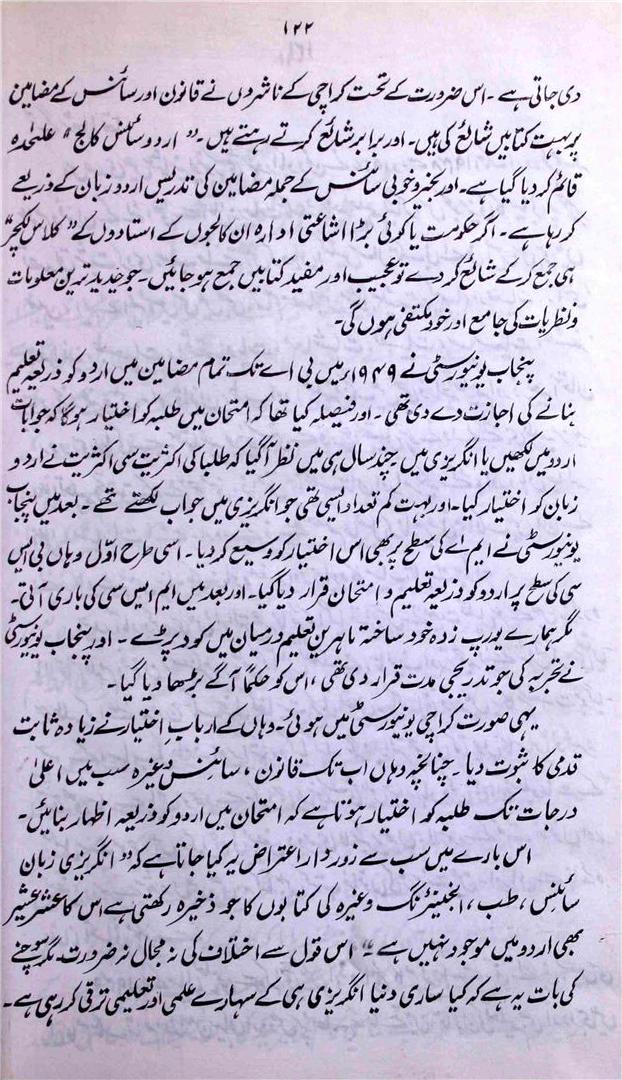 ۱۲۲
دی جاتی ہے۔ اس ضرورت کے تحت کراچی کے ناشروں نے قانون اور سائنس کے مضامین
پر بہت کتابیں شائع کی ہیں۔ اور برابر شائع کرتے رہتے ہیں۔ "اردو سائنس کالج" علٰحدہ
قائم کر دیا گیا ہے۔ اور بخیر و خوبی سائنس کے جملہ مضامین کی تدریس اردو زبان کے ذریعے
کر رہا ہے۔ اگر حکومت یا کوئی بڑا اشاعتی ادارہ ان کالجوں کے استادوں کے "کلاس لکچر"
ہی جمع کر کے شائع کر دے تو عجیب اور مفید کتابیں جمع ہو جائیں۔ جو جدید ترین معلومات
و نظریات کی جامع اور خود مکتفی ہوں گی۔
پنجاب یونیورسٹی نے ۱۹۴۹ء میں بی اے تک تمام مضامین میں اردو کو ذریعہ تعلیم
بنانے کی اجازت دے دی تھی۔ اور فیصلہ کیا تھا کہ امتحان میں طلبہ کو اختیار ہوگا کہ جوابات
اردو میں لکھیں یا انگریزی میں۔ چند سال ہی میں نظر آ گیا کہ طلبا کی اکثریت سی اکثریت نے اردو
زبان کو اختیار کیا۔ اور بہت کم تعداد ایسی تھی جو انگریزی میں جواب لکھتے تھے۔ بعد میں پنجاب
یونیورسٹی نے ایم اے کی سطح پر بھی اس اختیار کو وسیع کر دیا۔ اسی طرح اوّل وہاں بی ایس
سی کی سطح پر اردو کو ذریعہ تعلیم و امتحان قرار دیا گیا۔ اور بعد میں ایم ایس سی کی باری آتی۔
مگر ہمارے یورپ زدہ خود ساختہ ماہرین تعلیم درمیان میں کود پڑے۔ اور پنجاب یونیورسٹی
نے تجربہ کی جو تدریجی مدت قرار دی تھی، اس کو حکماً آگے بڑھا دیا گیا۔
یہی صورت کراچی یونیورسٹی میں ہوئی۔ وہاں کے ارباب اختیار نے زیادہ ثابت
قدمی کا ثبوت دیا۔ چنانچہ وہاں اب تک قانون، سائنس وغیرہ سب میں اعلیٰ
درجات تک طلبہ کو اختیار ہوتا ہے کہ امتحان میں اردو کو ذریعہ اظہار بنائیں۔
اس بارے میں سب سے زوردار اعتراض یہ کیا جاتا ہے کہ "انگریزی زبان
سائنس، طب، انجینئرنگ وغیرہ کی کتابوں کا جو ذخیرہ رکھتی ہے اس کا عشر عشیر
بھی اردو میں موجود نہیں ہے۔" اس قول سے اختلاف کی نہ مجال نہ ضرورت۔ مگر سوچنے
کی بات یہ ہے کہ کیا ساری دنیا انگریزی ہی کے سہارے علمی اور تعلیمی ترقی کر رہی ہے۔